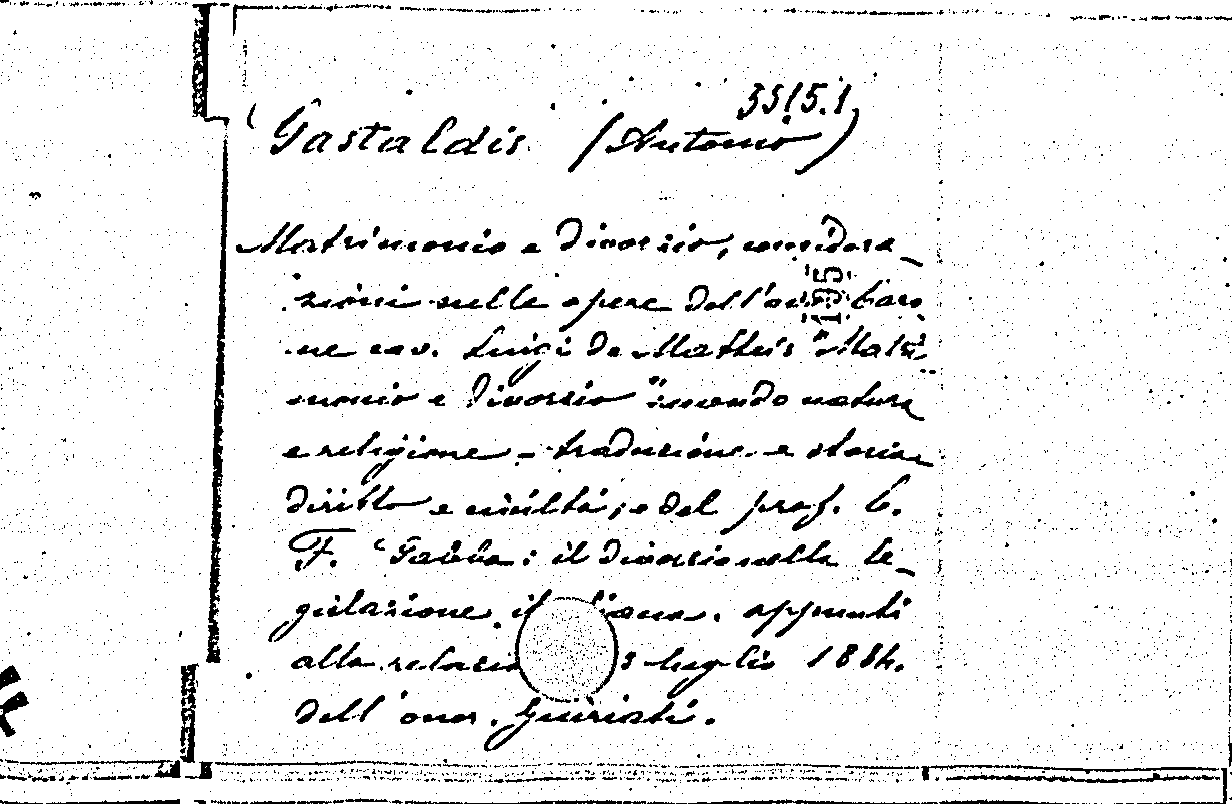 3515.1
Gastaldis (Antonio)
Matrimonio e divorzio, considera_
zioni sulle opere dell'avv. baro
ne cav. Luigi De Matteis "Matri
monio e divorzio" secondo natura
e religione - tradizione e storia
diritto e civiltà; e del prof. C.
F. Gabba: il divorzio nella le_
gislazione italiana. appunti
alla 3 luglio 1884.
dell'onor. Giuriati.
195